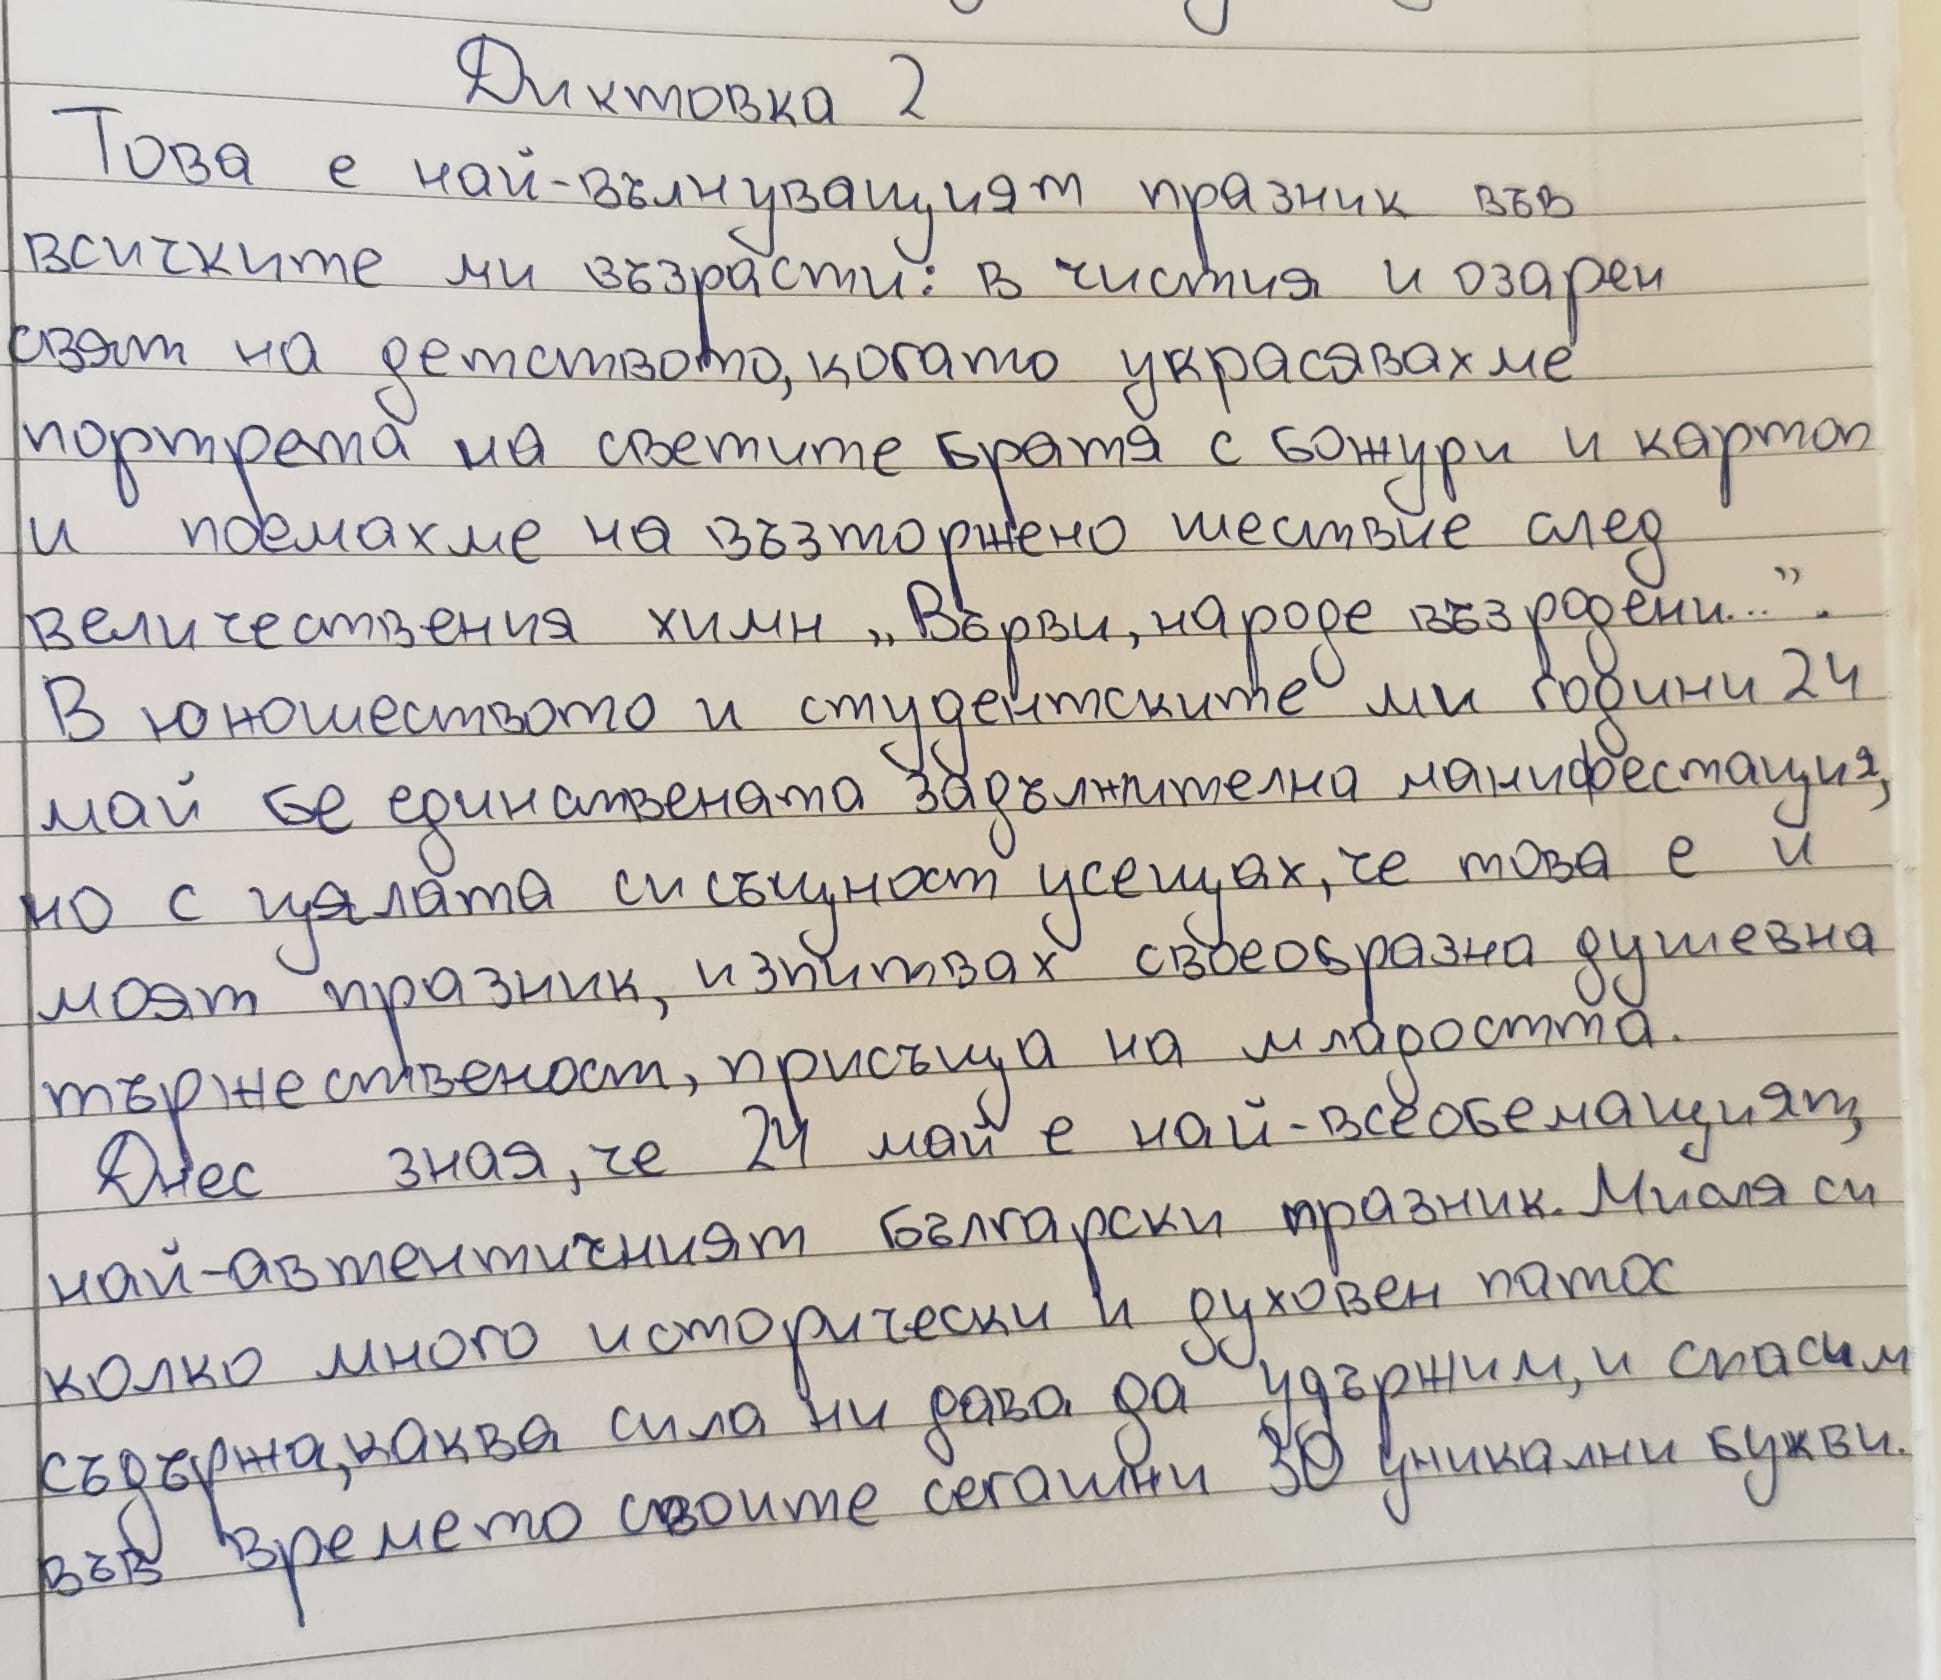 Диктовка 2
Това е най-вълнуващият празник във
всичките ми възрасти: в чистия и озарен
свят на детството, когато украсявахме
портрета на светите братя с божури и картоп
и поемахме на възторжено шествие след
величествения химн „Върви, народе възродени...”.
В юношеството и студентските ми години 24
май бе единствената задължителна манифестация,
но с цялата си същност усещах, че това е и
моят празник, изпитвах своеобразна душевна
тържественост, присъща на младостта.
Днес зная, че 24 май е най-всеобемащият,
най-автентичният български празник. Мисля си
колко много исторически и духовен патос
съдържа, каква сила ни дава да удържим, и спасим
във времето своите сегашни 30 уникални букви.